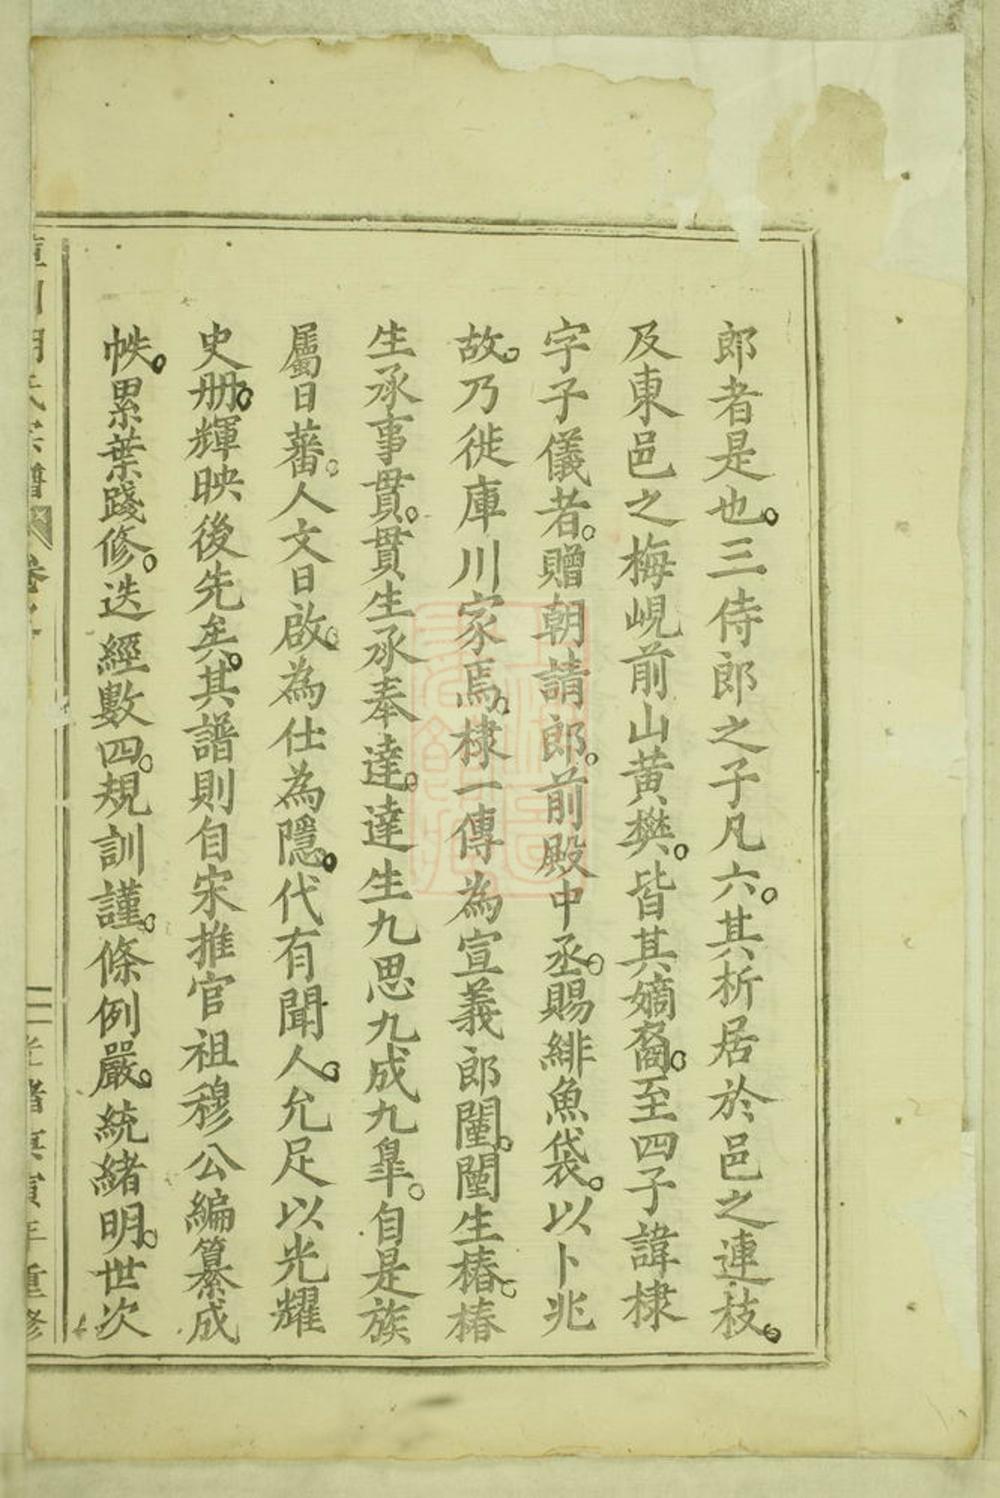 郎者是也。三侍郎之子凡六。其析居於邑之連枝。
及東邑之梅峴前山黃樊。皆其嫡裔。至四子諱棣
字子儀者。贈朝請郎。前殿中丞。賜緋魚袋。以卜兆
故。乃徙庫川家焉。棣一傳為宣義郎闉。闉生椿。椿
生承事貫。貫生承奉達。達生九思九成九臯。自是族
屬日蕃。人文日啟。為仕為隱。代有聞人。允足以光耀
史册。輝映後先矣。其譜則自宋推官祖穆公編纂成
帙。累葉踐修。迭經數四。規訓謹。條例嚴。統緒明。世次
川胡氏宗譜 卷之
二 光緒庚寅年重修